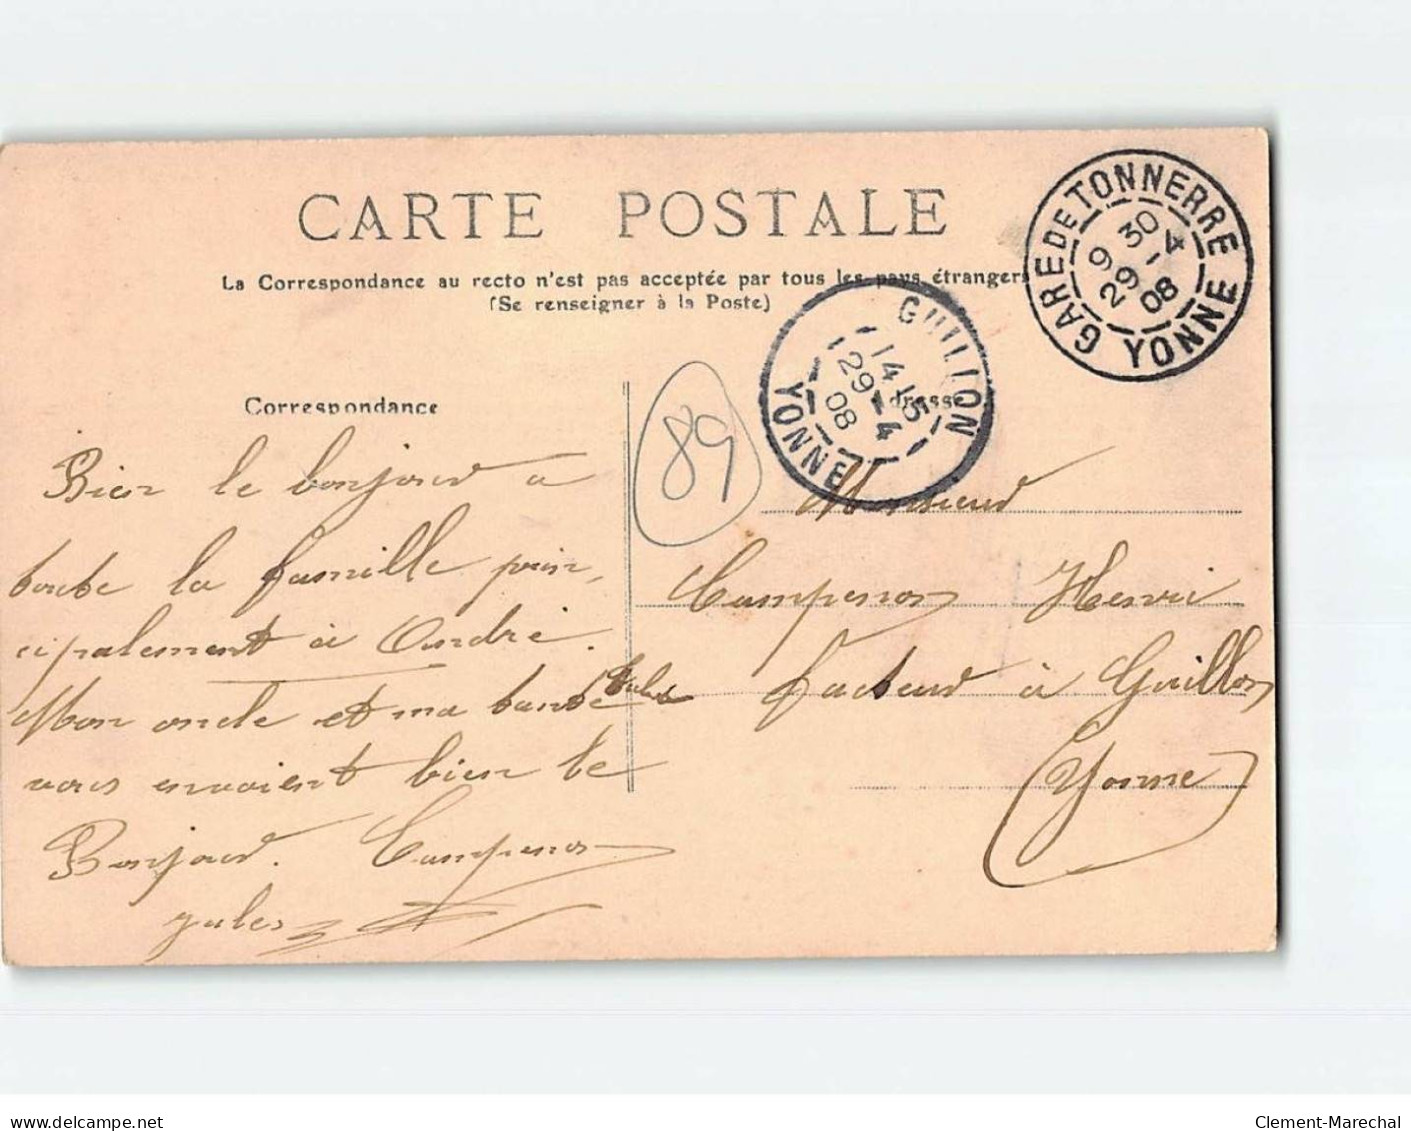 CARTE POSTALE
La Correspondance au recto n'est pas acceptée par tous les pays étrangers
(Se renseigner à la Poste)
GARE DE TONNERRE
9 30
29 - 4
08
YONNE
GUILLON
14 15
29 - 4
08
YONNE
Correspondance
Adresse
89
Bien le bonjour a
toute la famille prin,
cipalement à André.
Mon oncle et ma tante
vous envoient bien le
Bonjour. Campenon
Jules
Monsieur
Campenon Henri
facteur à Guillon
(Yonne)
delcampe.net
Clement-Marechal